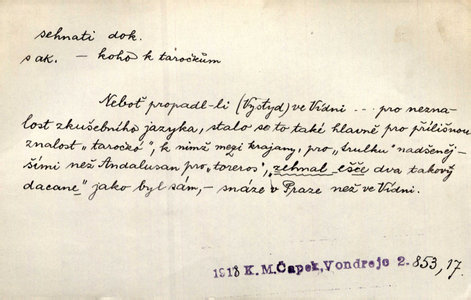 sehnati dok.
s ak. — koho k taročkům
Neboť propadl-li (Vystyd) ve Vídni ... pro nezna-
lost zkušebního jazyka, stalo se to také hlavně pro přílišnou
znalost „taročkó", k nimž mezi krajany, pro „trulku" nadšeněj-
šími než Andalusan pro „toreros", „zehnal ešče dva takový
dacané" jako byl sám, — snáze v Praze než ve Vídni.
1918 K. M. Čapek, Vondrejc 2. 853, 17